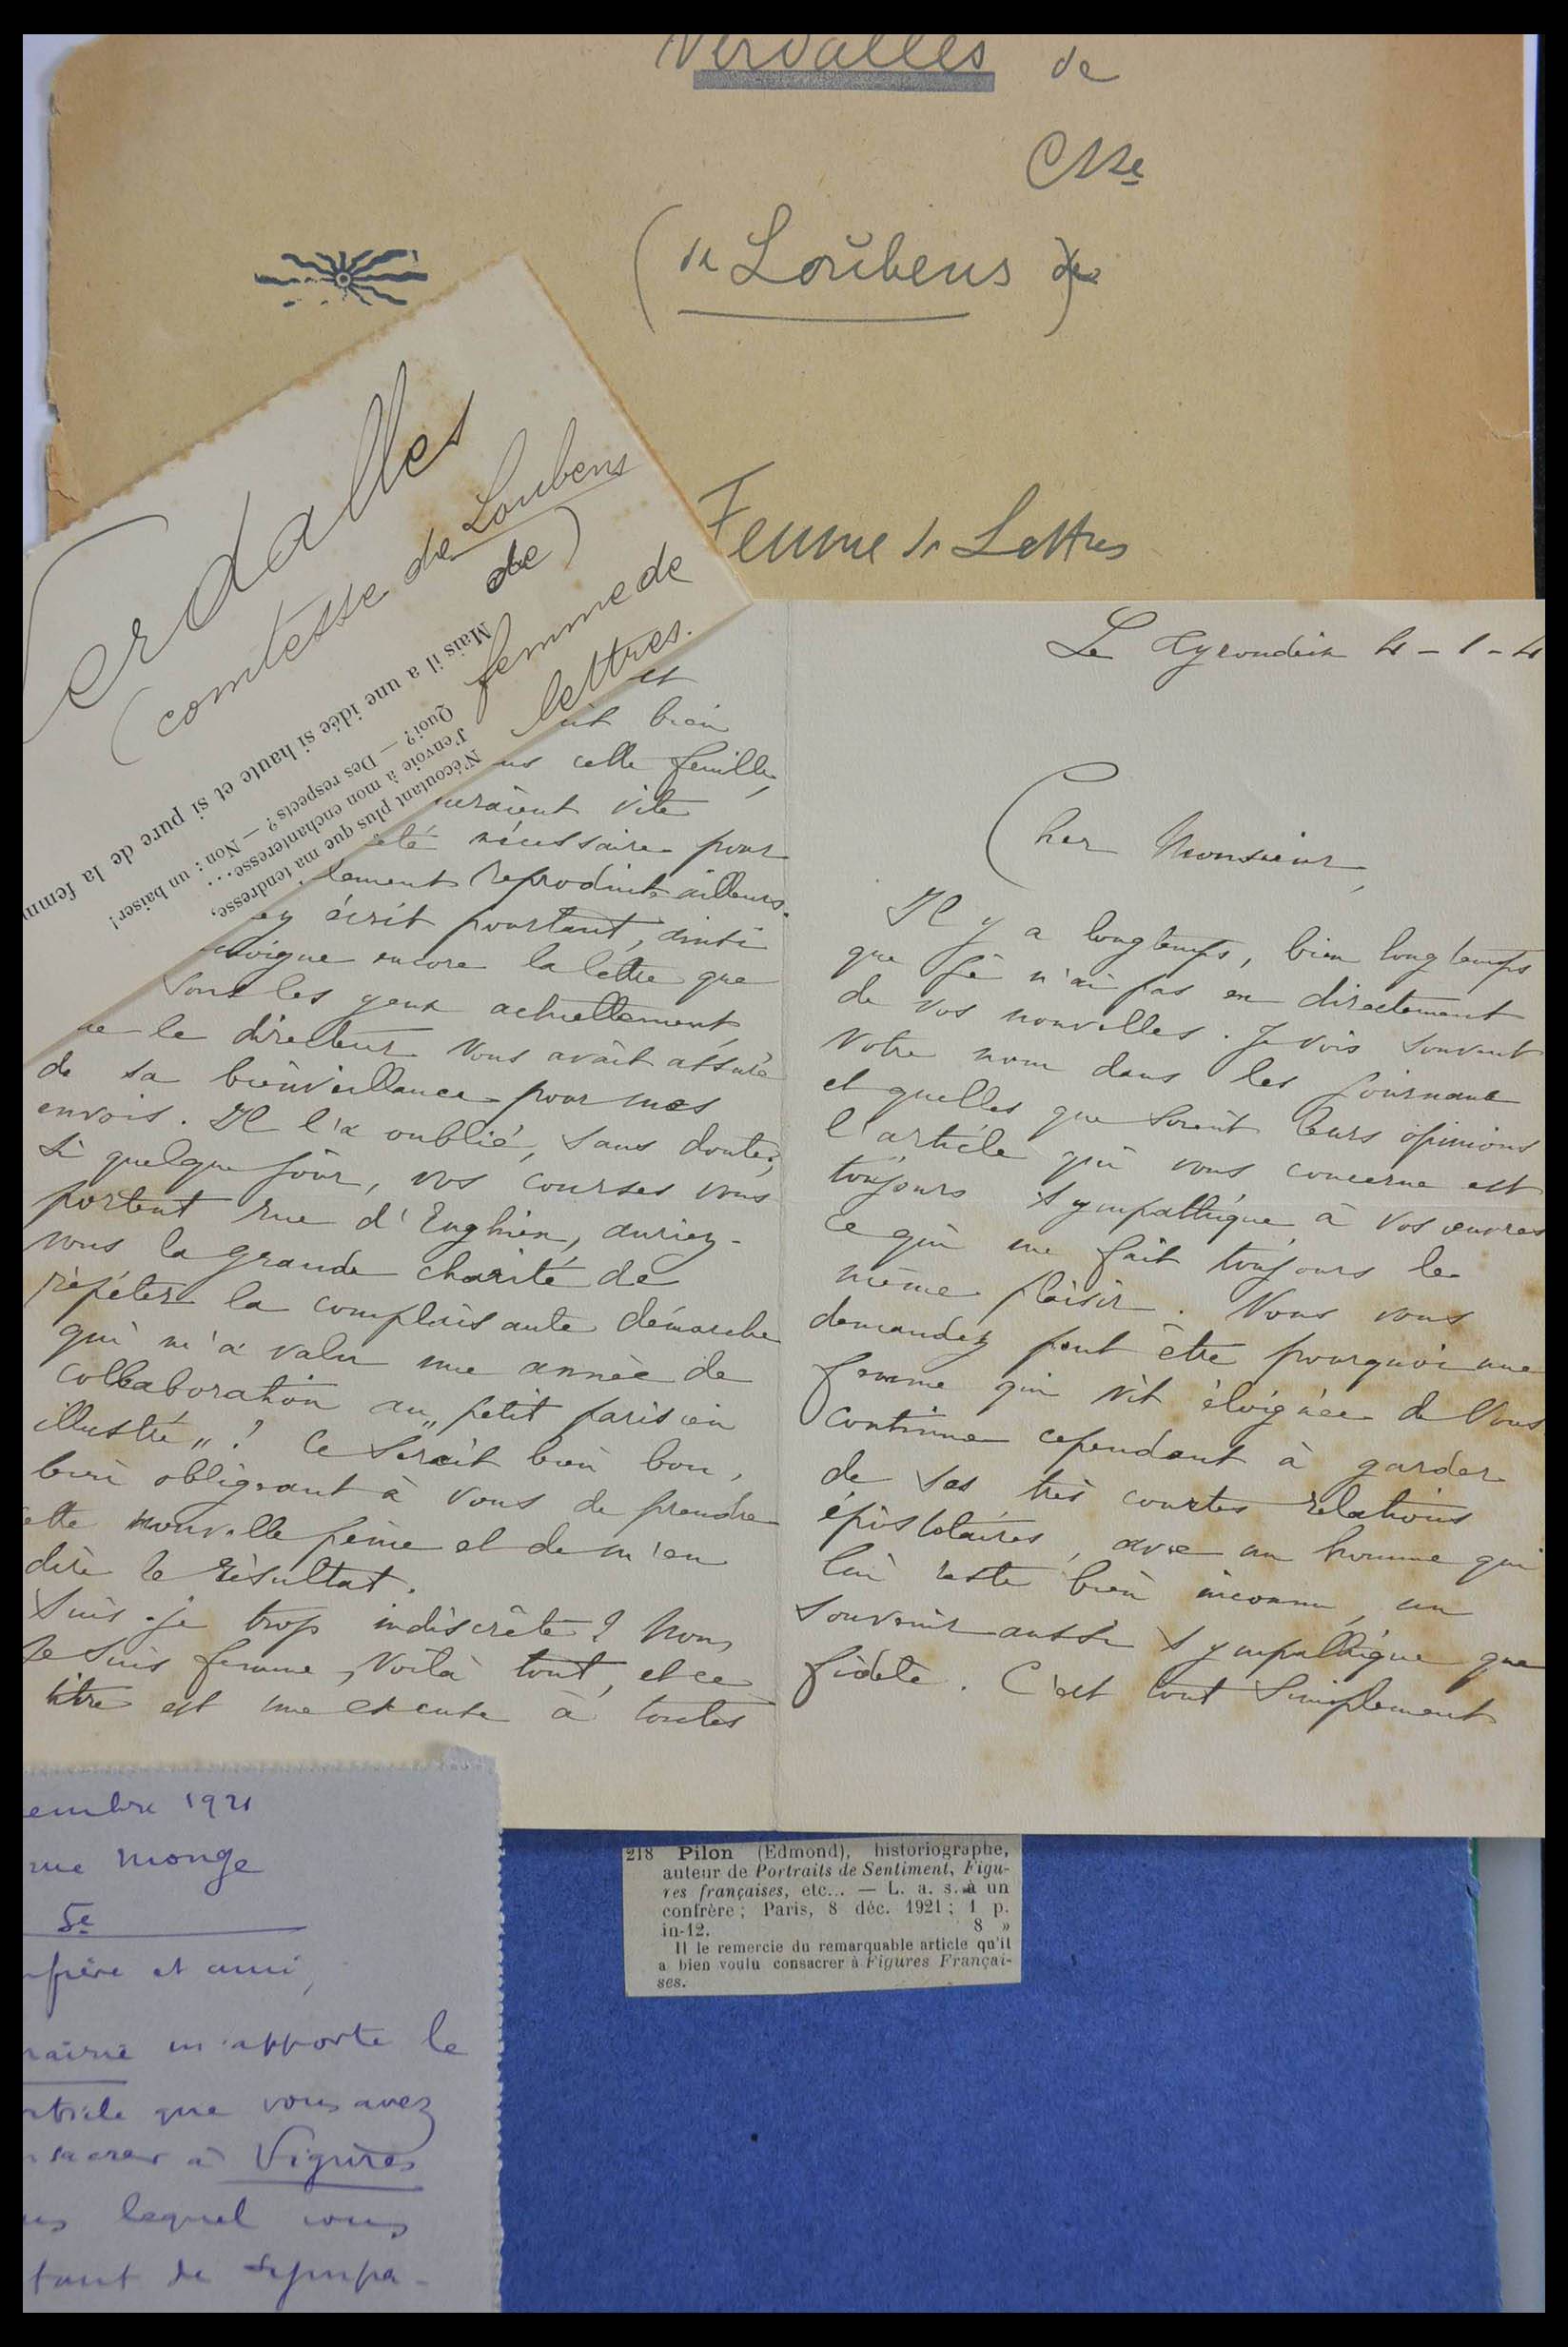 Verdalles de
Csse
(de Loubens de)
Femme de Lettres
Verdalles
(comtesse de Loubens
de)
femme de
lettres.
Mais il a une idée si haute et si pure de la femm
N'écoutant plus que ma tendresse,
J'envoie à mon enchanteresse...
Quoi? — Des respects? — Non : un baiser!
et
bien
cette feuille,
vite
nécessaire pour
reproduite ailleurs.
écrit pourtant, ainsi
encore la lettre que
sous les yeux actuellement
le directeur vous avait assuré
de sa bienveillance pour mes
envois. Il l'a oublié, sans doute,
Si quelque jour, vos courses vous
portent rue d'Enghien, auriez-
vous la grande charité de
répéter la complaisante démarche
qui m'a valu une année de
collaboration au „petit parisien
illustré„? Ce serait bien bon,
bien obligeant à vous de prendre
ette nouvelle peine et de m'en
dire le résultat.
Suis-je trop indiscrète? Non,
Je suis femme, voilà tout, et ce
titre est une excuse à toutes
Le Gyroudein 4-1-4
Cher Monsieur,
Il y a longtemps, bien longtemps
que je n'ai pas eu directement
de vos nouvelles. Je vois souvent
votre nom dans les journaux
et quelles que soient leurs opinions
l'article qui vous concerne est
toujours sympathique à vos œuvres
ce qui me fait toujours le
même plaisir. Vous vous
demandez peut être pourquoi une
femme qui vit éloignée de vous
continue cependant à garder
de ses très courtes relations
épistolaires, avec un homme qui
lui reste bien inconnu, un
souvenir aussi sympathique que
fidèle. C'est tout simplement
embre 1921
rue Monge
5e
frère et ami,
rairie m'apporte le
rticle que vous avez
sacrer à Figures
lequel vous
tant de sympa-
218 Pilon (Edmond), historiographe,
auteur de Portraits de Sentiment, Figu-
res françaises, etc... — L. a. s. à un
confrère; Paris, 8 déc. 1921; 1 p.
in-12. 8 »
Il le remercie du remarquable article qu'il
a bien voulu consacrer à Figures Françai-
ses.